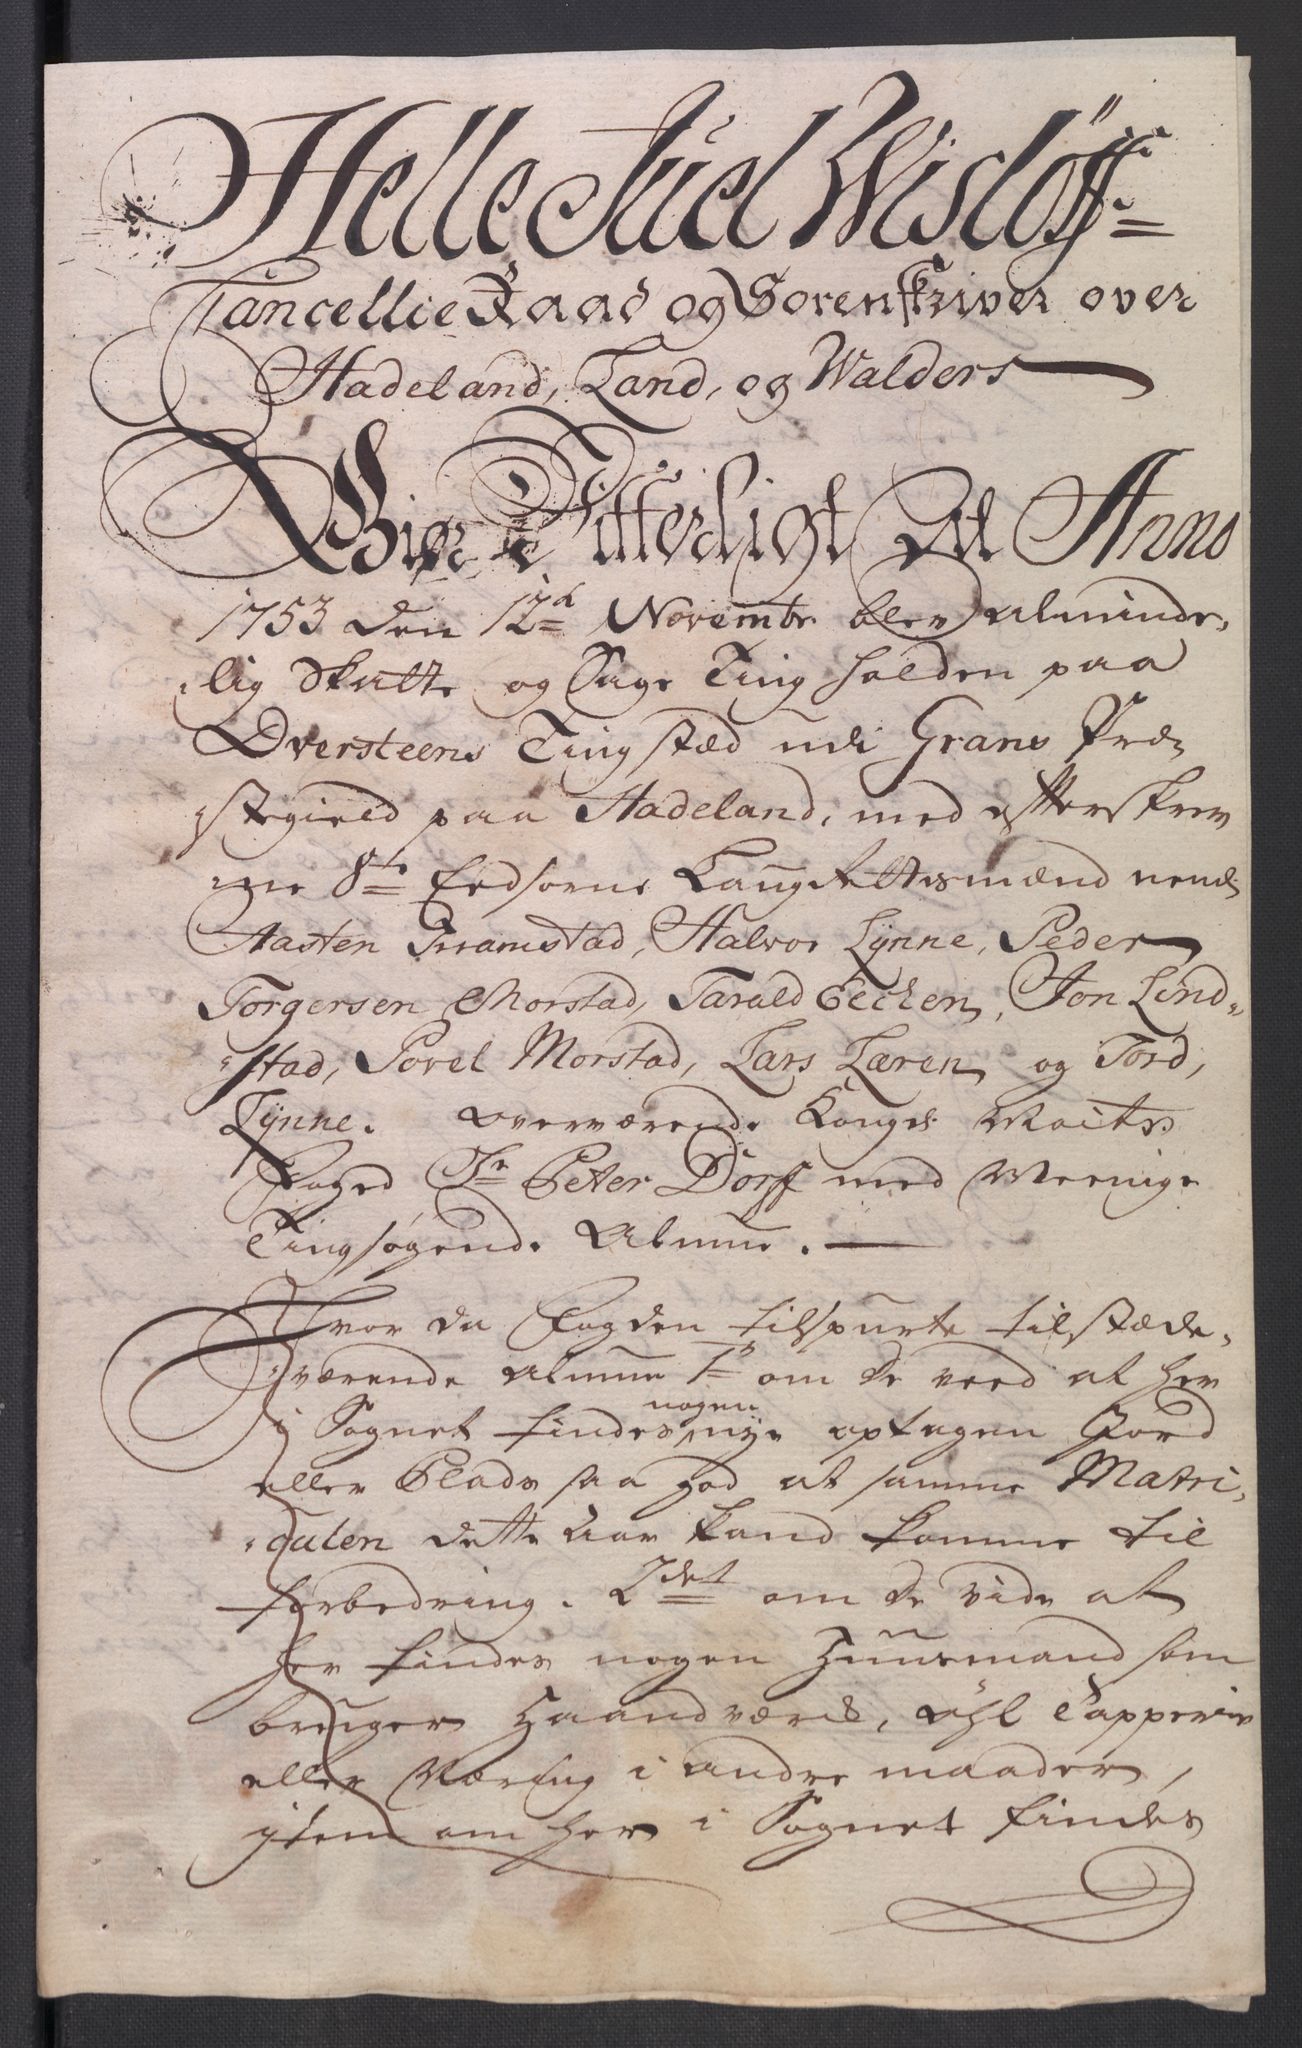 Helle Juel Wislöff.
Cancellie Raad og Sorenskriver over
Hadeland, Land, og Walders
Giør Vitterligt At Anno
1753 den 12te Novembr. blev alminde,
lig Skatte og Sage Ting holden paa
Oversteens Tingstæd udi Grans Præ,
stegield paa Hadeland, med efterskrev
ne 8te Eedsorne Laug Rettesmænd nendl.
Aasten Framstad, Halvor Lynne, Peder
Torgersen Morstad, Tarald Ecken, Jon Lind,
stad, Povel Morstad, Lars Læren og Tord,
Lynne. overværende Kongl. Maits
Foged Sr. Peter Dorff med Meenige
Tingsøgende Almue.
Hvor da Fogden tilspurte tilstæde,
værende Almue 1o om de veed at her
i Sognet findes nogen nye optagen Jord
eller Plads saa god at samme Matri,
culen dette Aar kand komme til
forbedring. 2det om de vide at
her findes nogen Huusmand som
bruger Haandværk, öhl Tapperie
eller Næring i andre maader,
item om her i Sognet findes